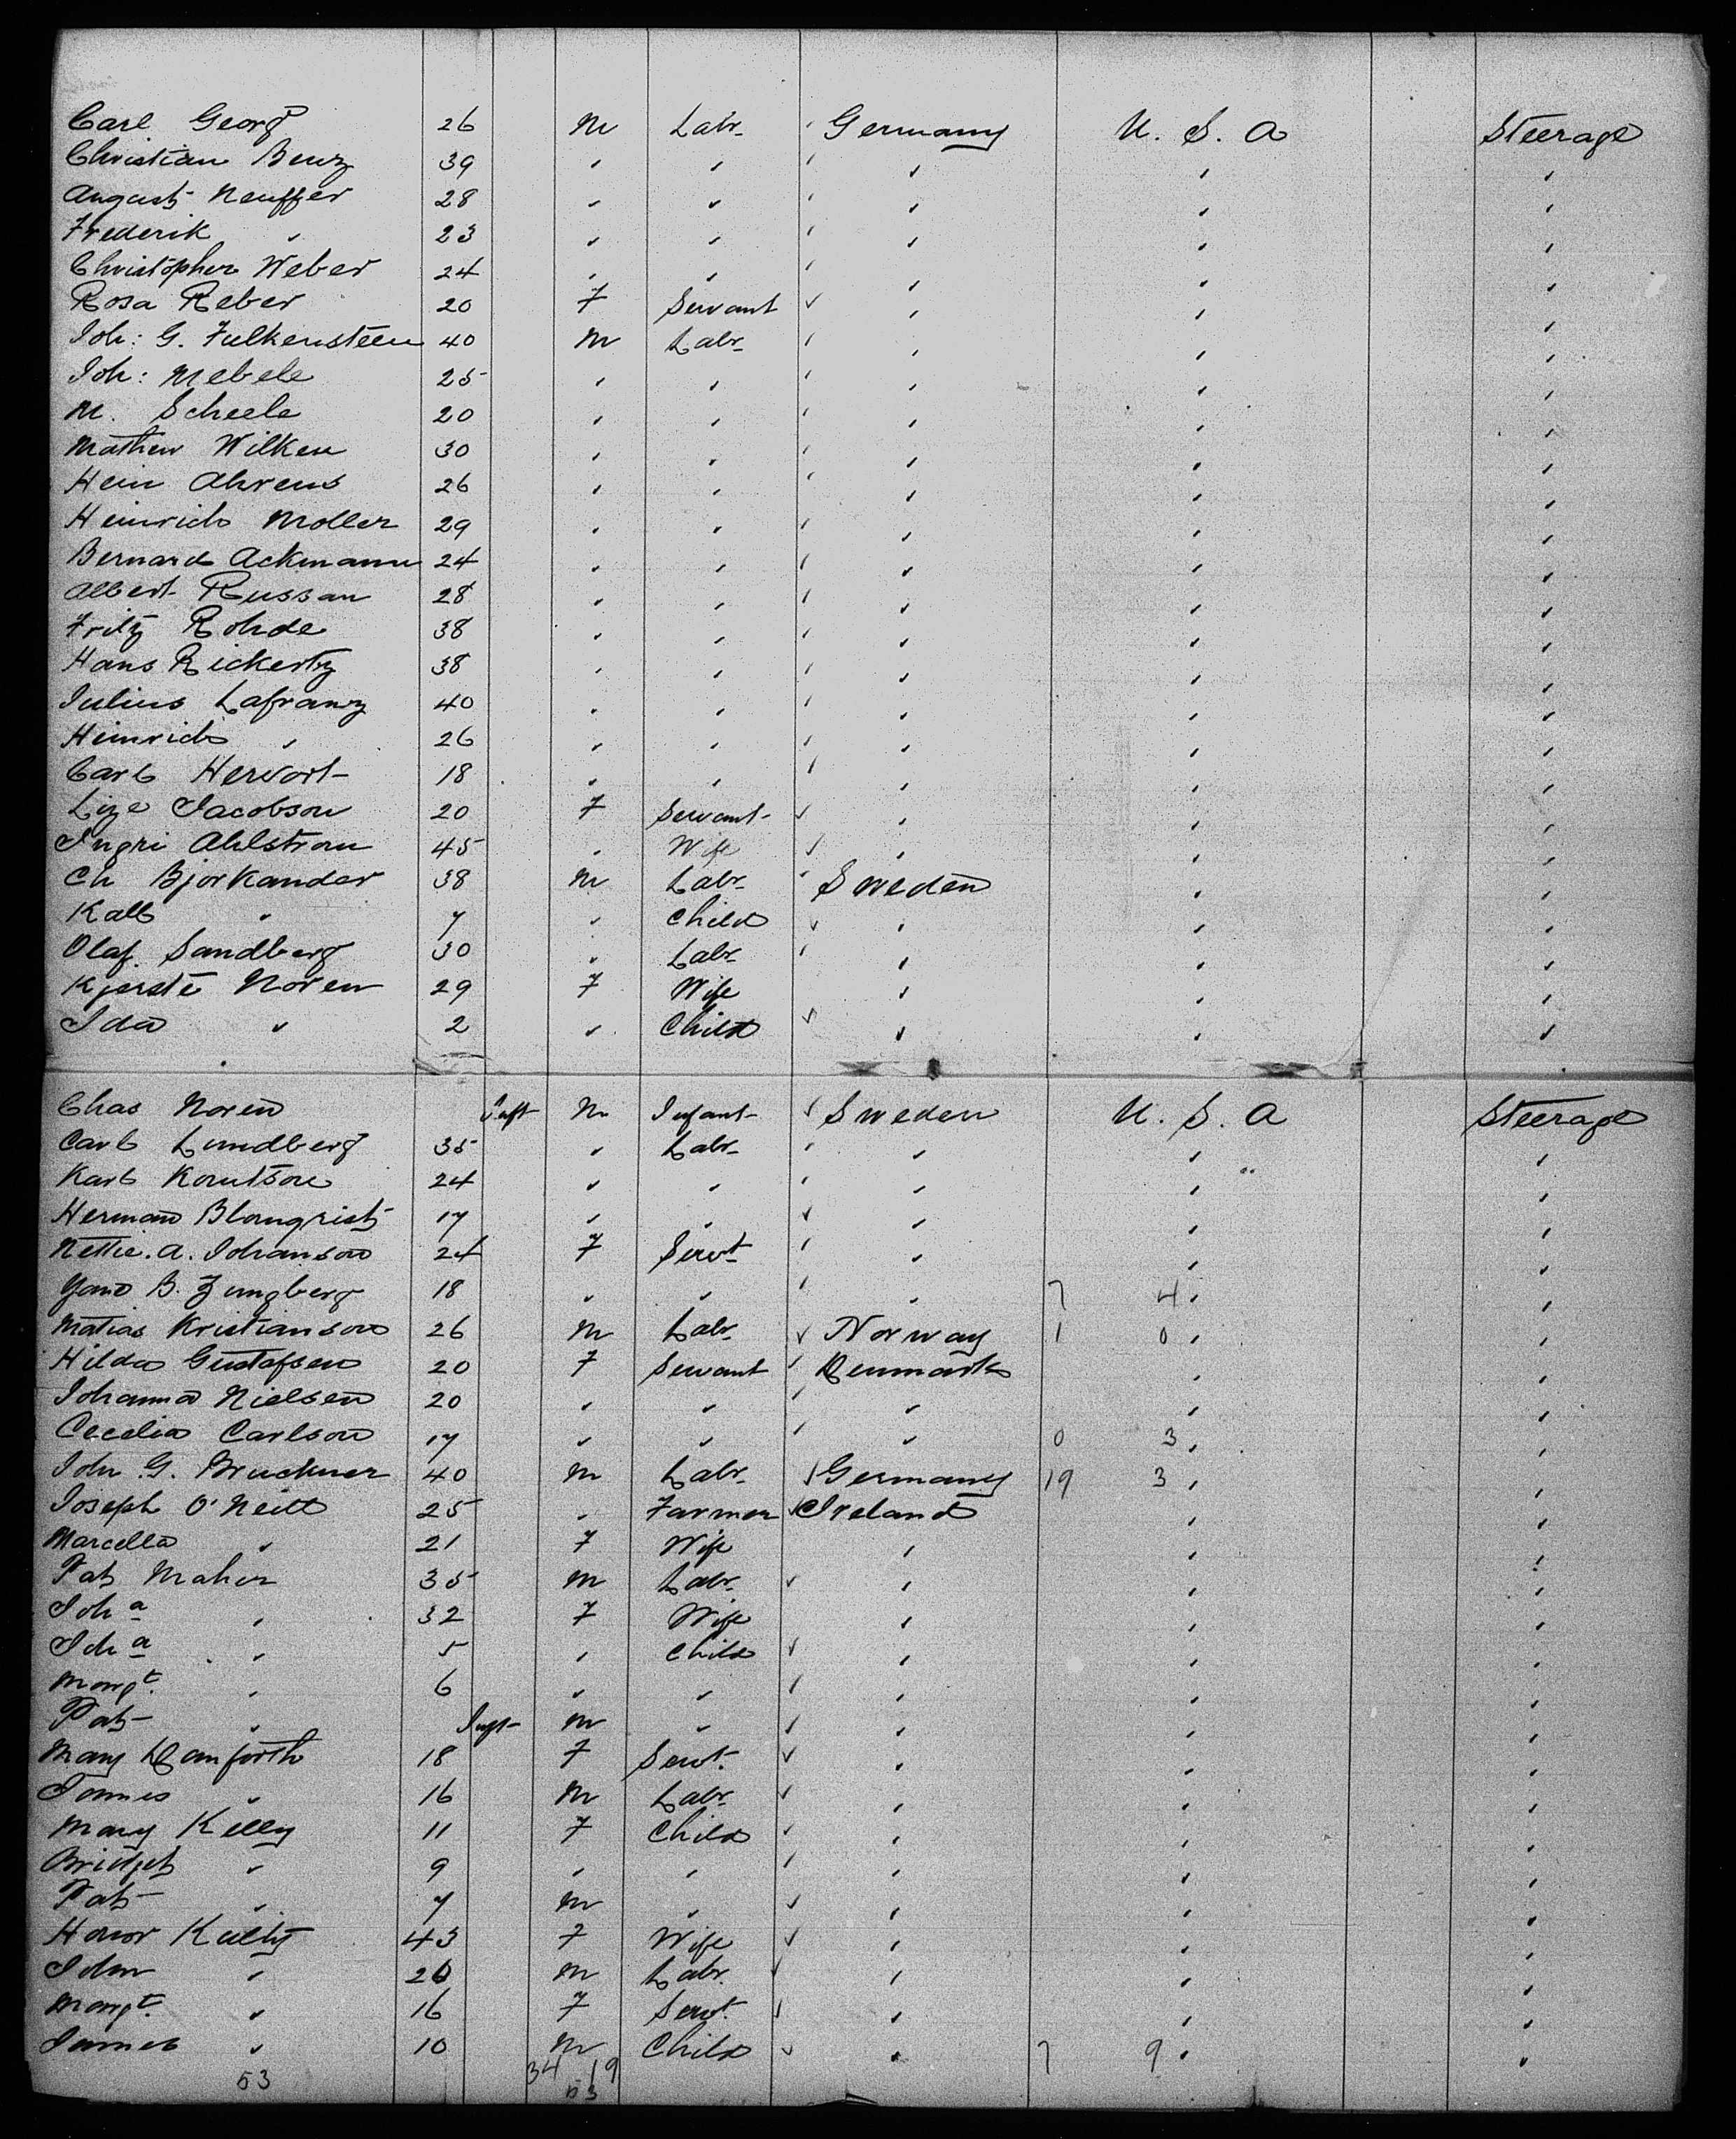 Carl Georg 26 M Labr Germany U. S. A Steerage
Christian Benz 39 " " " " "
August Neuffer 28 " " " " "
Frederik " 23 " " " " "
Christopher Weber 24 " " " " "
Rosa Reber 20 F Servant " " "
Joh: G. Fulkensteen 40 M Labr " " "
Joh: Mebele 25 " " " " "
M. Scheele 20 " " " " "
Mathew Wilken 30 " " " " "
Hein Ahrens 26 " " " " "
Heinrich Moller 29 " " " " "
Bernard Ackmann 24 " " " " "
Albert Russau 28 " " " " "
Fritz Rohde 38 " " " " "
Hans Rickertz 38 " " " " "
Julius Lafranz 40 " " " " "
Heinrich " 26 " " " " "
Carl Hervort 18 " " " " "
Lize Jacobson 20 F Servant " " "
Ingri Ahlstrom 45 " Wife " " "
Ch Bjorkander 38 M Labr Sweden " "
Kall " 7 " Child " " "
Olaf Sandberg 30 " Labr " " "
Kjerste Noren 29 F Wife " " "
Ida " 2 " Child " " "
Chas Noren Inft M Infant Sweden U. S. A Steerage
Carl Lundberg 35 " Labr " " "
Karl Komtson 24 " " " " "
Herman Blomqrist 17 " " " " "
Nettie. A. Johanson 24 F Servt " " "
B. 18 " " " 7 4 " "
Matias Kristianson 26 M Labr Norway 1 0 " "
Hilda Gustafsen 20 F Servant Denmark " "
Johanna Nielsen 20 " " " " "
Cecelia Carlson 17 " " " 0 3 " "
John G. Bruckner 40 M Labr Germany 19 3 " "
Joseph O'Neill 25 " Farmer Ireland " "
Marcella " 21 F Wife " " "
Pat Maher 35 M Labr " " "
Joh a " 32 F Wife " " "
Joh a " 5 " Child " " "
Margt. " 6 " " " " "
Pat " Inft M " " " "
Mary Danforth 18 F Servt. " " "
James " 16 M Labr " " "
Mary Kelly 11 F Child " " "
Bridget " 9 " " " " "
Pat " 7 M " " " "
Honor Kielty 43 F Wife " " "
John " 20 M Labr. " " "
Margt. " 16 F Servt. " " "
James " 10 M Child " 7 9 " "
53 34 19
53